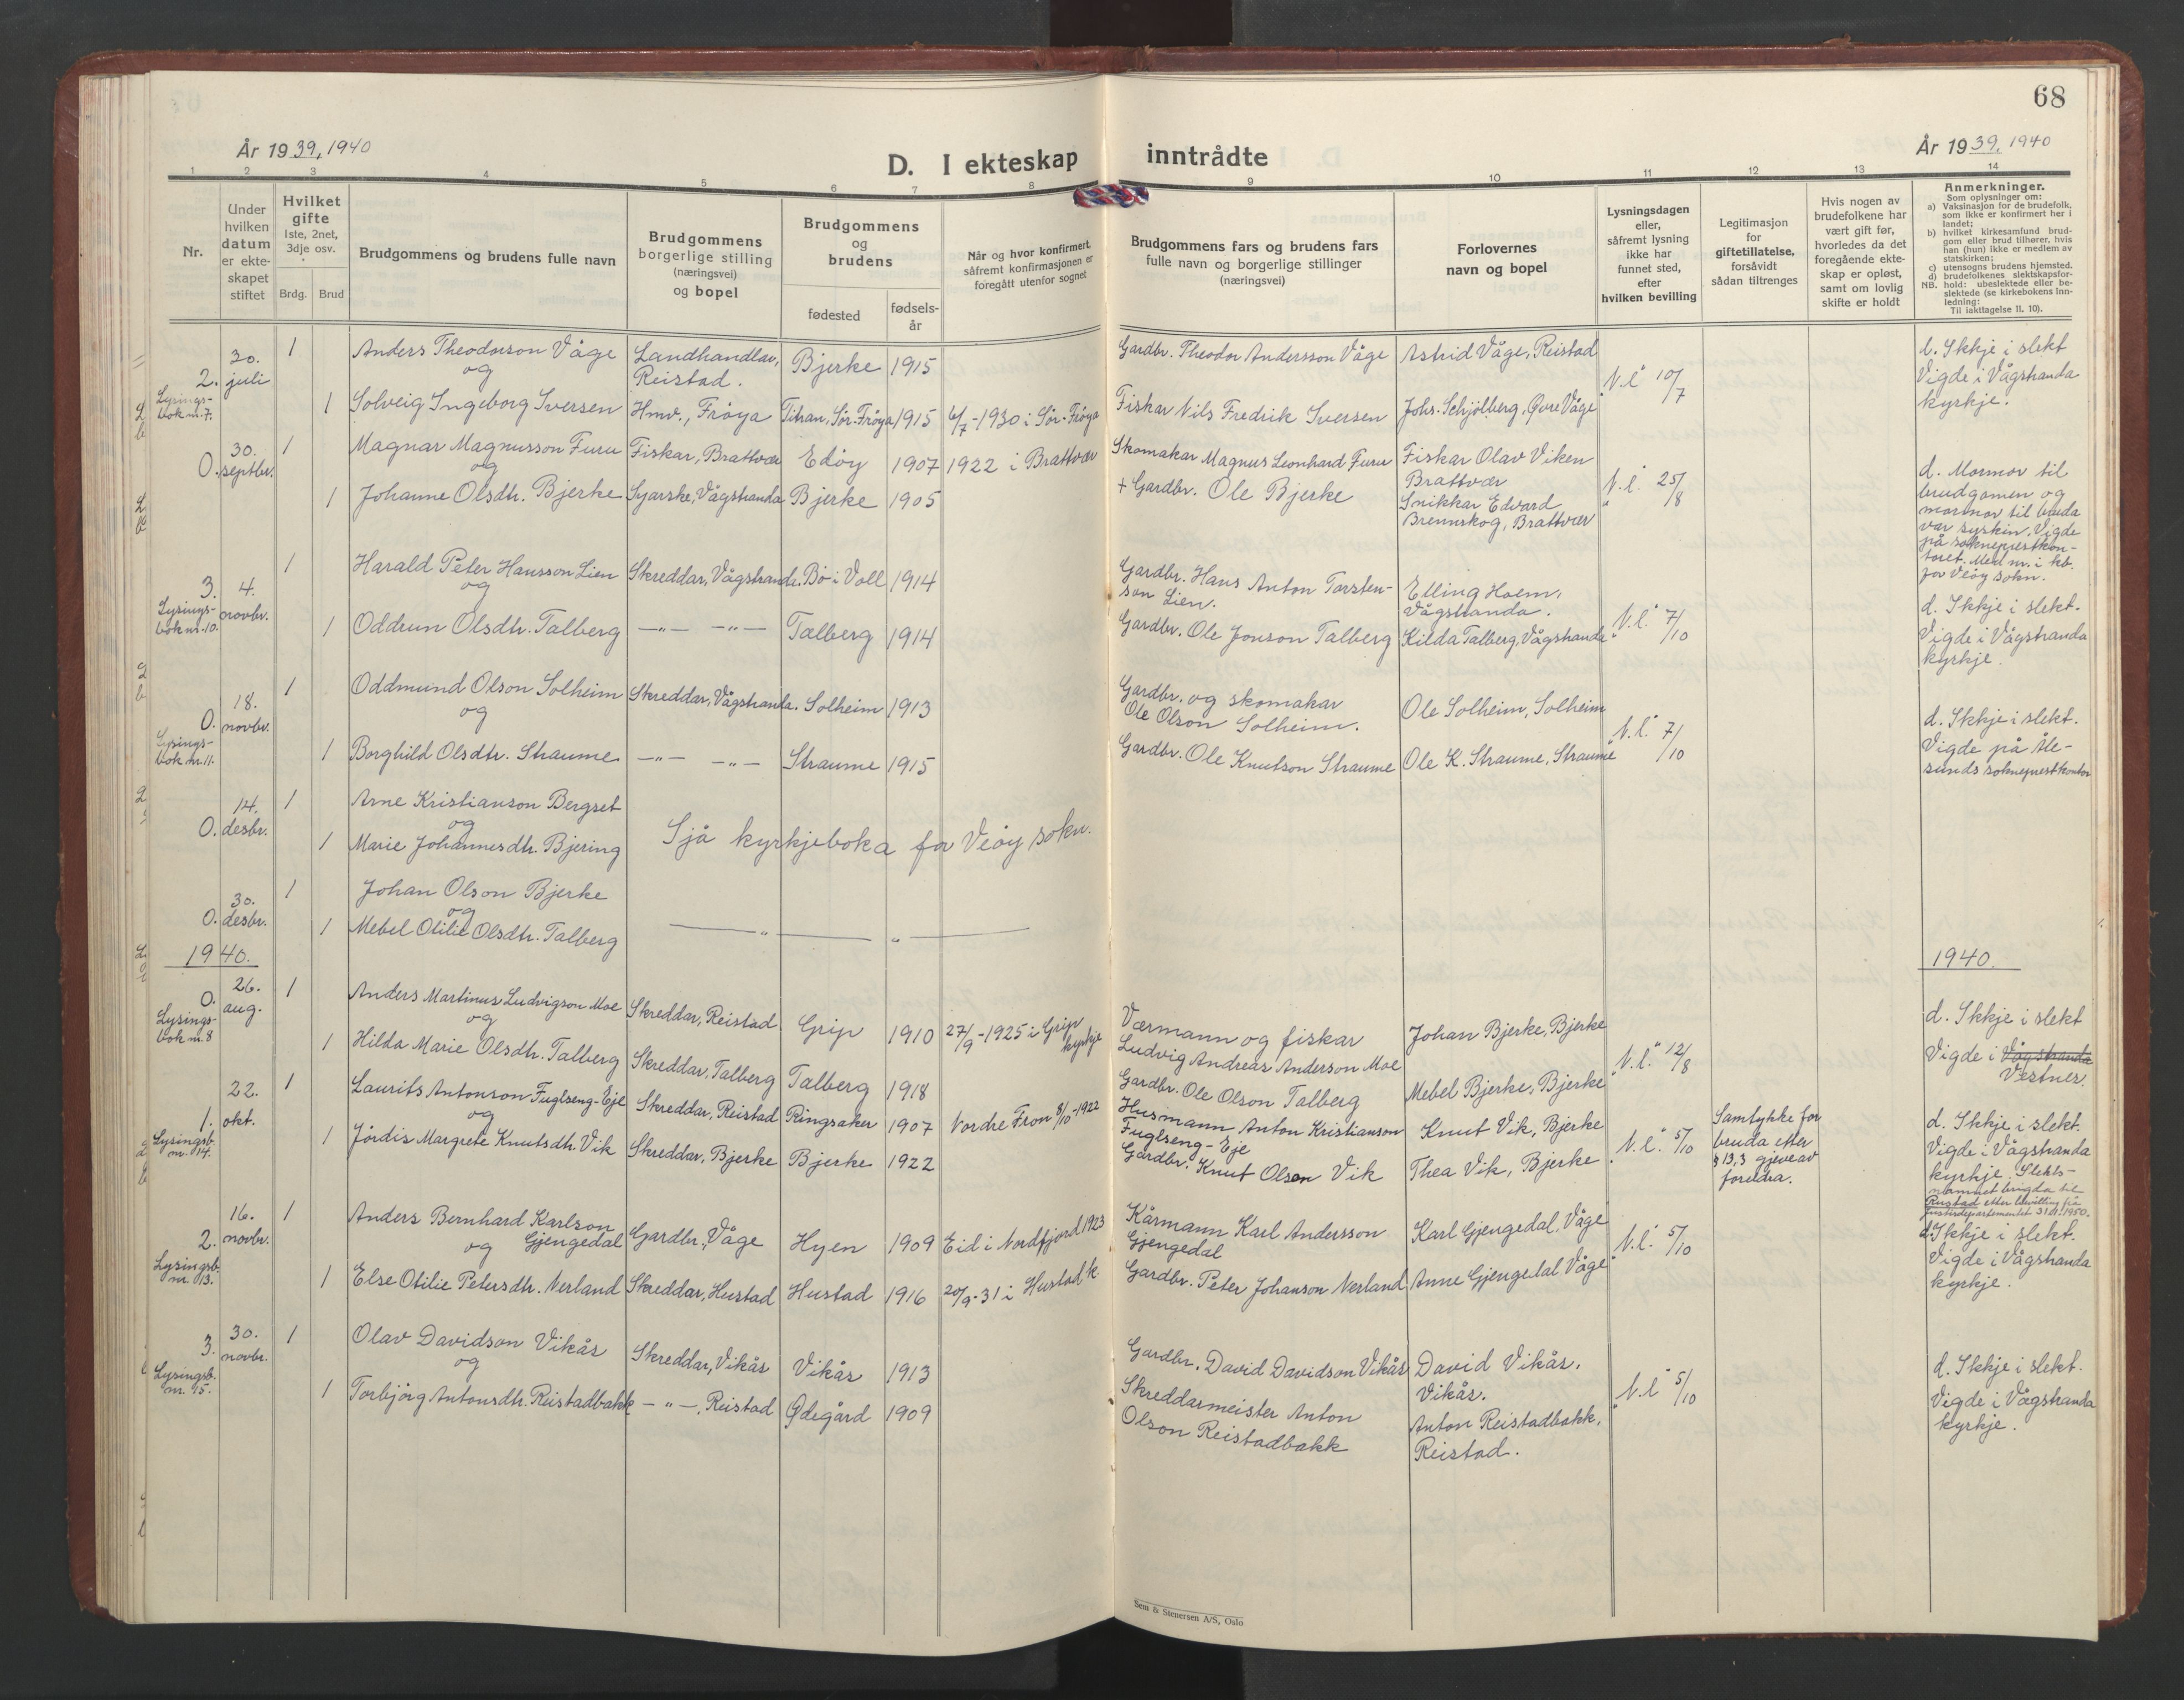 68
År 1939, 1940
D. I ekteskap inntrådte
År 1939, 1940
1 2 3 4 5 6 7 8 9 10 11 12 13 14
Nr.
Under hvilken datum er ekteskapet stiftet
Hvilket gifte 1ste, 2net, 3dje osv.
Brdg. Brud
Brudgommens og brudens fulle navn
Brudgommens borgerlige stilling (næringsvei) og bopel
Brudgommens og brudens
fødested
fødsels-år
Når og hvor konfirmert, såfremt konfirmasjonen er foregått utenfor sognet
Brudgommens fars og brudens fars fulle navn og borgerlige stillinger (næringsvei)
Forlovernes navn og bopel
Lysningsdagen eller, såfremt lysning ikke har funnet sted, efter hvilken bevilling
Legitimasjon for giftetillatelse, forsåvidt sådan tiltrenges
Hvis nogen av brudefolkene har vært gift før, hvorledes da det foregående ekteskap er opløst, samt om lovlig skifte er holdt
Anmerkninger.
Som oplysninger om:
a) Vaksinasjon for de brudefolk, som ikke er konfirmert her i landet;
b) hvilket kirkesamfund brudgom eller brud tilhører, hvis han (hun) ikke er medlem av statskirken;
c) utensogns brudens hjemsted.
d) brudefolkenes slektskapsforhold: ubeslektede eller beslektede (se kirkebokens innledning:
NB.
Til iakttagelse II. 10).
2. 30. juli 1 Anders Theodorson Våge Landhandlar, Reistad. Bjerke 1915 Gardbr. Theodor Andersson Våge Astrid Våge, Reistad
og
Lysingsbok nr. 7. 1 Solveig Ingeborg Iversen Hmv., Frøya Titran, Sør-Frøya 1915 6/7-1930 i Sør-Frøya Fiskar Nils Fredrik Iversen Johs. Schjølberg, Øvre Våge
"N.l." 10/7
d. Ikkje i slekt
Vigde i Vågstranda
kyrkje.
0. 30. septbr. 1 Magnar Magnusson Furu Fiskar, Brattvær Edøy 1907 1922 i Brattvær Skomakar Magnus Leonhard Furu Fiskar Olav Viken Brattvær
og
1 Johanne Olsdtr. Bjerke Syarske, Vågstranda Bjerke 1905 + Gardbr. Ole Bjerke Snikkar Edvard Brennskog, Brattvær
"N.l." 25/8
d. Mormor til
brudgomen og
mormor til bruda
var syskin. Vigde
på sokneprestkon-
toret. Med nr. i kb.
for Veøy sokn.
3. 4. novbr. 1 Harald Peter Hansson Lien Skreddar, Vågstranda. Bø i Voll 1914 Gardbr. Hans Anton Torsten-
son Lien. Elling Hoem, Vågstranda.
og
Lysings-
bok nr. 10. 1 Oddrun Olsdtr. Talberg —"— —"— Talberg 1914 Gardbr. Ole Jonson Talberg Kilda Talberg, Vågstranda
"N.l." 7/10
d. Ikkje i slekt.
Vigde i Vågstranda
kyrkje.
0. 18. novbr. 1 Oddmund Olson Solheim Skreddar, Vågstranda. Solheim 1913 Gardbr. og skomakar
Ole Olson Solheim. Ole Solheim, Solheim
og
Lysings-
bok nr. 11. 1 Borghild Olsdtr. Straume —"— —"— Straume 1915 Gardbr. Ole Knutson Straume Ole K. Straume, Straume
"N.l." 7/10
d. Ikkje i slekt.
Vigde på Åle-
sunds sokneprestkontor
0. 14. desbr. 1 Arne Kristianson Bergset
og
1 Marie Johannesdtr. Bjering
Sjå kyrkjeboka for Veøy sokn.
0. 30. desbr. 1 Johan Olson Bjerke
og
1 Mebel Otilie Olsdtr. Talberg
— " — " —
1940. 1940.
0. 26. aug. 1 Anders Martinus Ludvigson Moe Skreddar, Reistad Grip 1910 27/9-1925 i Grip kyrkje Værmann og fiskar
Ludvig Andreas Anderson Moe Johan Bjerke, Bjerke
og
Lysings-
bok nr. 8 1 Hilda Marie Olsdtr. Talberg Skreddar, Talberg Talberg 1918 Gardbr. Ole Olson Talberg Mebel Bjerke, Bjerke
"N.l." 12/8
d. Ikkje i slekt
Vigde i Vågstranda
Vestnes.
1. 22. okt. 1 Laurits Antonson Fuglseng-Eje Skreddar, Reistad Ringsaker 1907 Nordre Fron 8/10-1922 Husmann Anton Kristianson
Fuglseng-Eje Knut Vik, Bjerke
og
Lysingsb.
nr. 14. 1 Jórdis Margrete Knutsdtr. Vik Skreddar, Bjerke Bjerke 1922 Gardbr. Knut Olsen Vik Thea Vik, Bjerke
"N.l." 5/10
Samtykke for
bruda etter
§ 13,3 gjeve av
foreldra.
d. Ikkje i slekt.
Vigde i Vågstranda
kyrkje. Slekts-
namnet brigda til
Rustad etter bevilling frå
justisdepartementet 31/1 1950.
2. 16. novbr. 1 Anders Bernhard Karlson
Gjengedal Gardbr., Våge Hyen 1909 Eid i Nordfjord 1923 Kårmann Karl Andersson
Gjengedal Karl Gjengedal, Våge
og
Lysingsb.
nr. 13. 1 Else Otilie Petersdtr. Nerland Skreddar, Hustad Hustad 1916 20/9-31 i Hustad k Gardbr. Peter Johanson Nerland Anne Gjengedal Våge
"N.l." 5/10
d. Ikkje i slekt.
Vigde i Vågstranda
kyrkje.
3. 30. novbr. 1 Olav Davidson Vikås Skreddar, Vikås Vikås 1913 Gardbr. David Davidson Vikås David Vikås, Vikås.
og
Lysingsb.
nr. 15. 1 Torbjørg Antonsdtr. Reistadbakk —"—, Reistad Ødegård 1909 Skreddarmeister Anton
Olson Reistadbakk Anton Reistadbakk, Reistad.
"N.l." 5/10
d. Ikkje i slekt.
Vigde i Vågstranda
kyrkje.
Sem & Stenersen A/S, Oslo